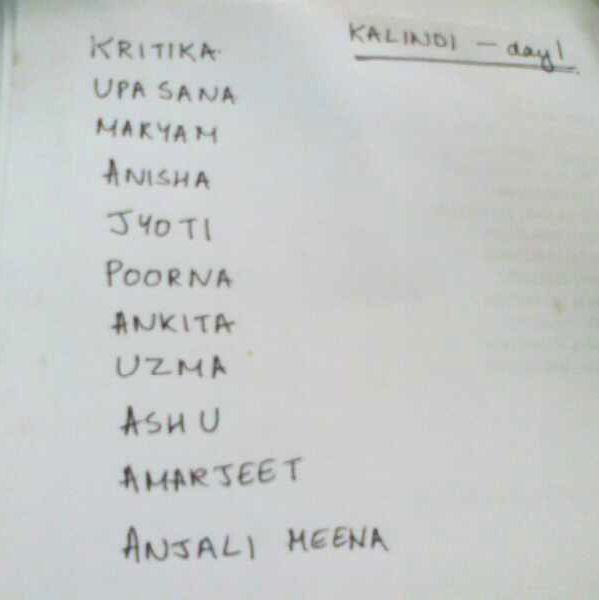 KALINDI - day 1
KRITIKA
UPASANA
MARYAM
ANISHA
JYOTI
POORNA
ANKITA
UZMA
ASHU
AMARJEET
ANJALI MEENA